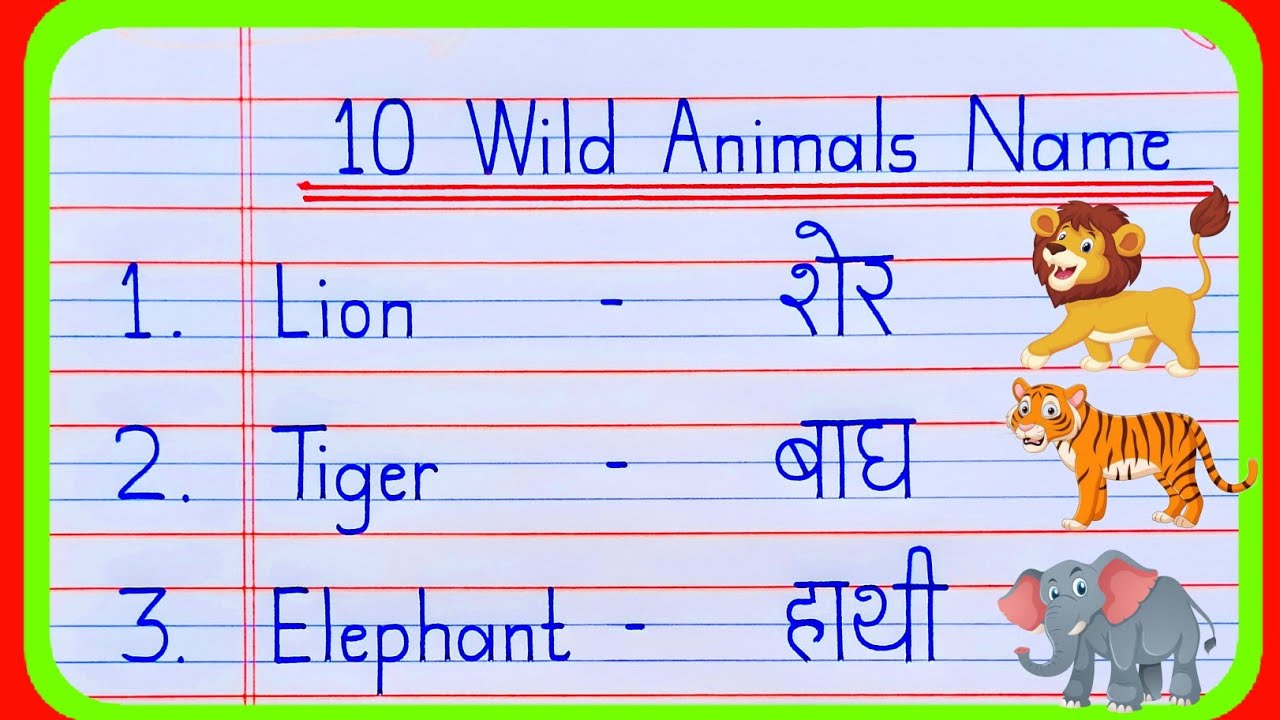 10 Wild Animals Name
1. Lion - शेर
2. Tiger - बाघ
3. Elephant - हाथी